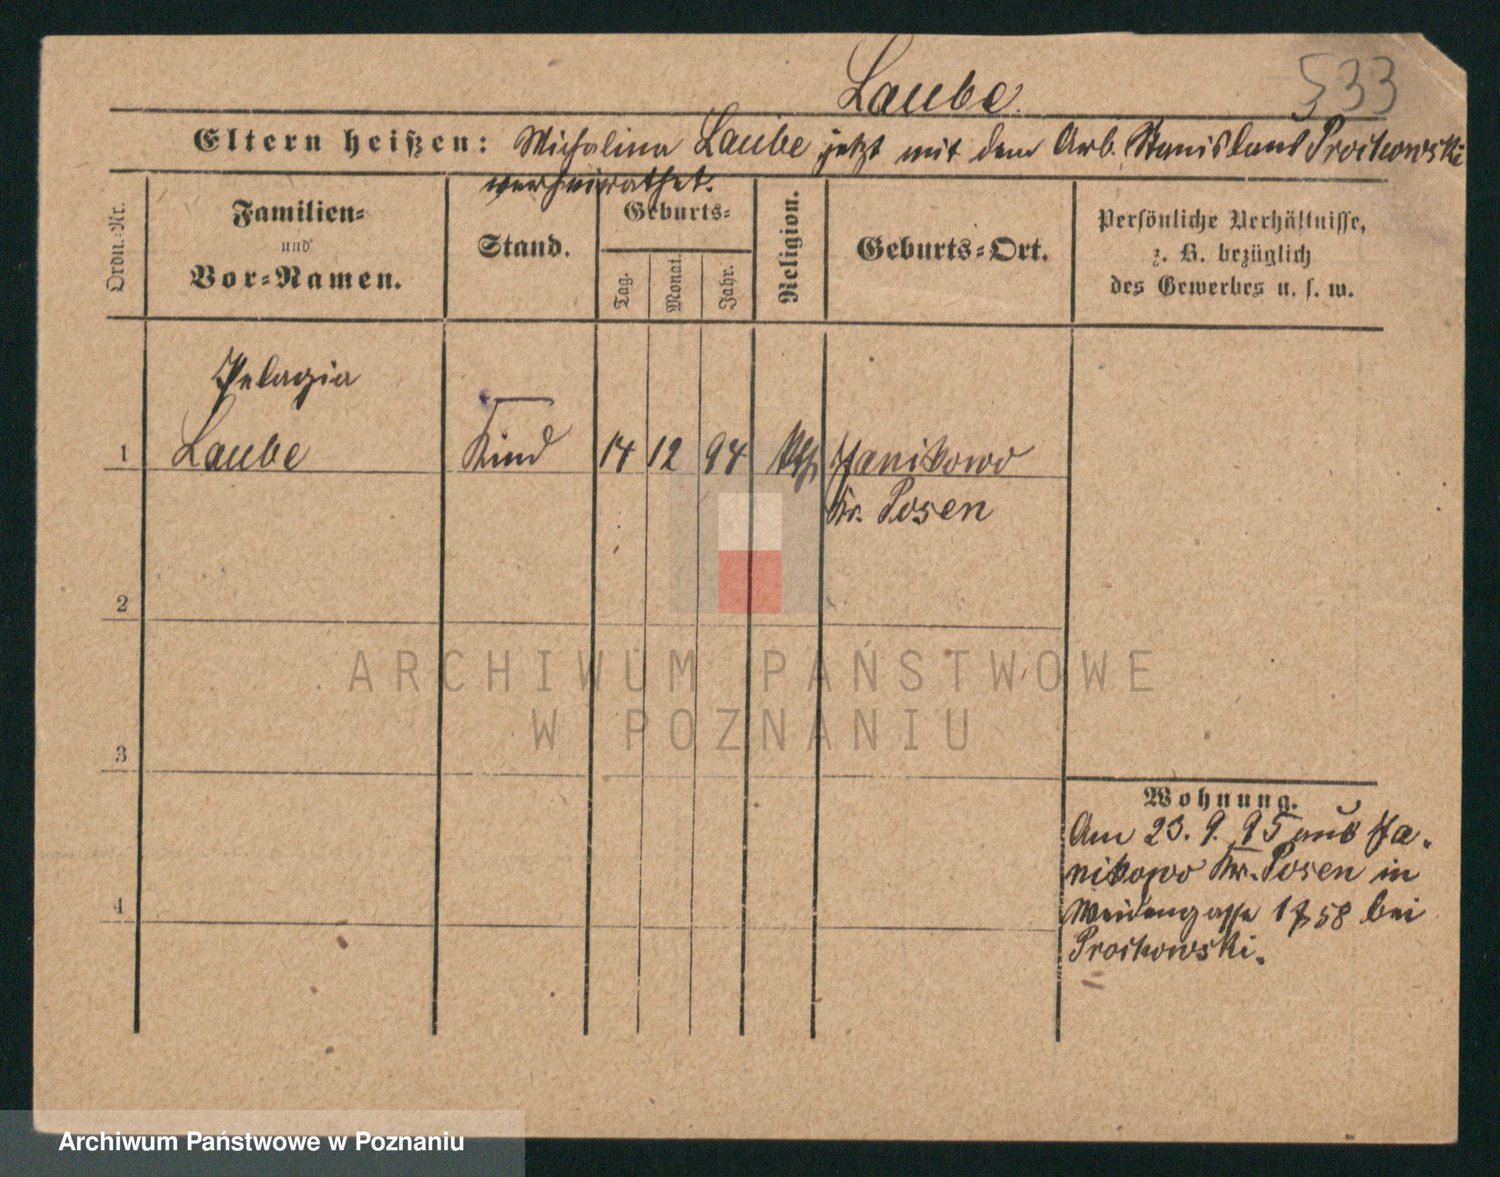 Laube.
533
Eltern heißen: Michalina Laube jetzt mit dem Arb. Stanislaus Prochowski
verheirathet.
Ordn.-Nr.
Familien-
und
Vor-Namen.
Stand.
Geburts-
Tag.
Monat.
Jahr.
Religion.
Geburts-Ort.
Persönliche Verhältnisse,
z. B. bezüglich
des Gewerbes u. s. w.
Pelagia
1 Laube Kind 14 12 94 kth Janikowo
Kr. Posen
2
3
4
Wohnung.
Am 23. 9. 95 aus Ja-
nikowo Kr. Posen in
Weidengasse bei
Prochowski.
ARCHIWUM PAŃSTWOWE
W POZNANIU
Archiwum Państwowe w Poznaniu